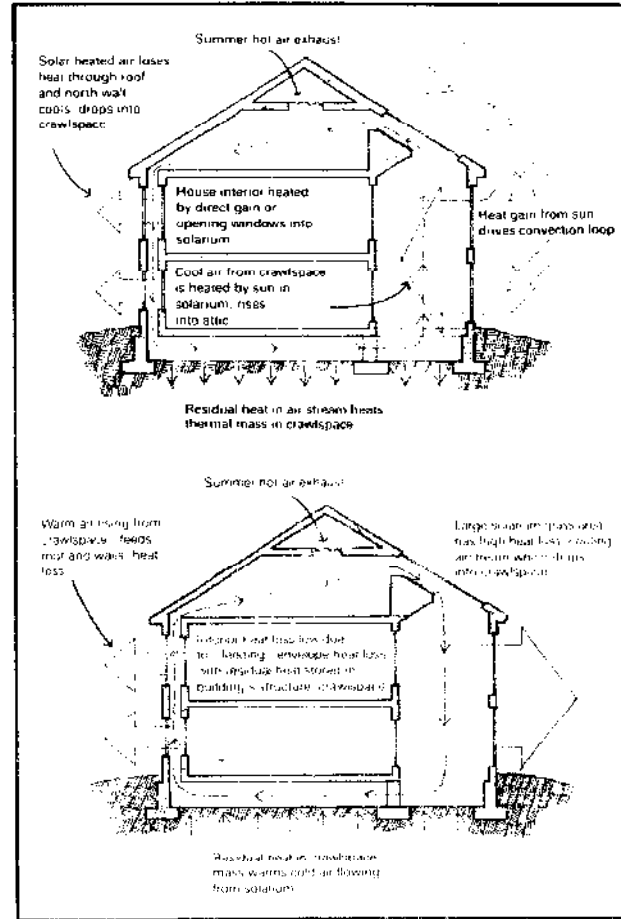 Summer hot air exhaust
Solar heated air loses
heat through roof
and north wall
cools drops into
crawlspace
House interior heated
by direct gain or
opening windows into
solarium
Heat gain from sun
drives convection loop
Cool air from crawlspace
is heated by sun in
solarium, rises
into attic
Residual heat in air stream heats
thermal mass in crawlspace
Summer hot air exhaust
Warm air rising from
crawlspace feeds
roof and walls heat
loss
Large solarium glass area
has high heat loss, cooling
air stream which drops
into crawlspace
Interior heat loss low due
to envelope heat loss
residual heat stored in
building's structure crawlspace
Residual heat in crawlspace
mass warms cold air flowing
from solarium